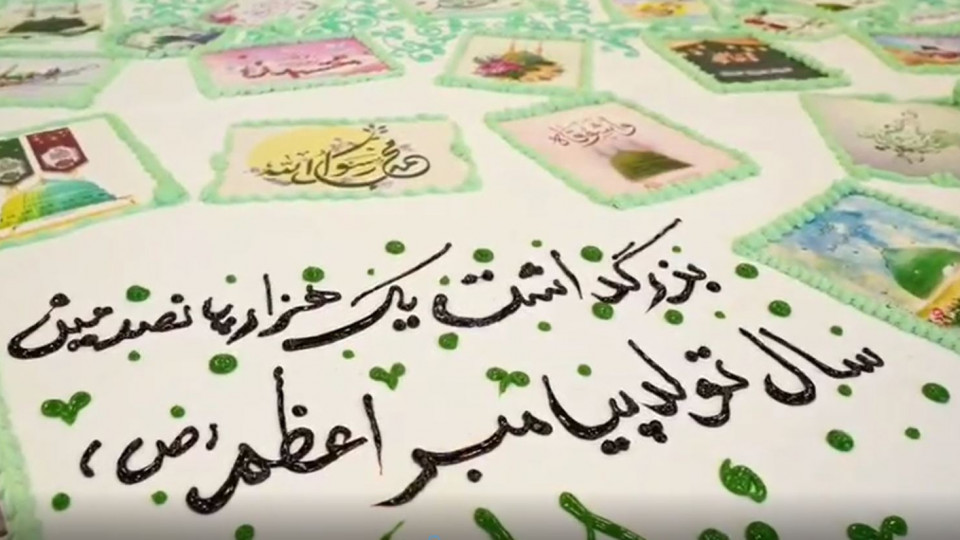 محمد رسول الله
بزرگداشت یک هزار پانصد مین
سال تولد پیامبر اعظم (ص)